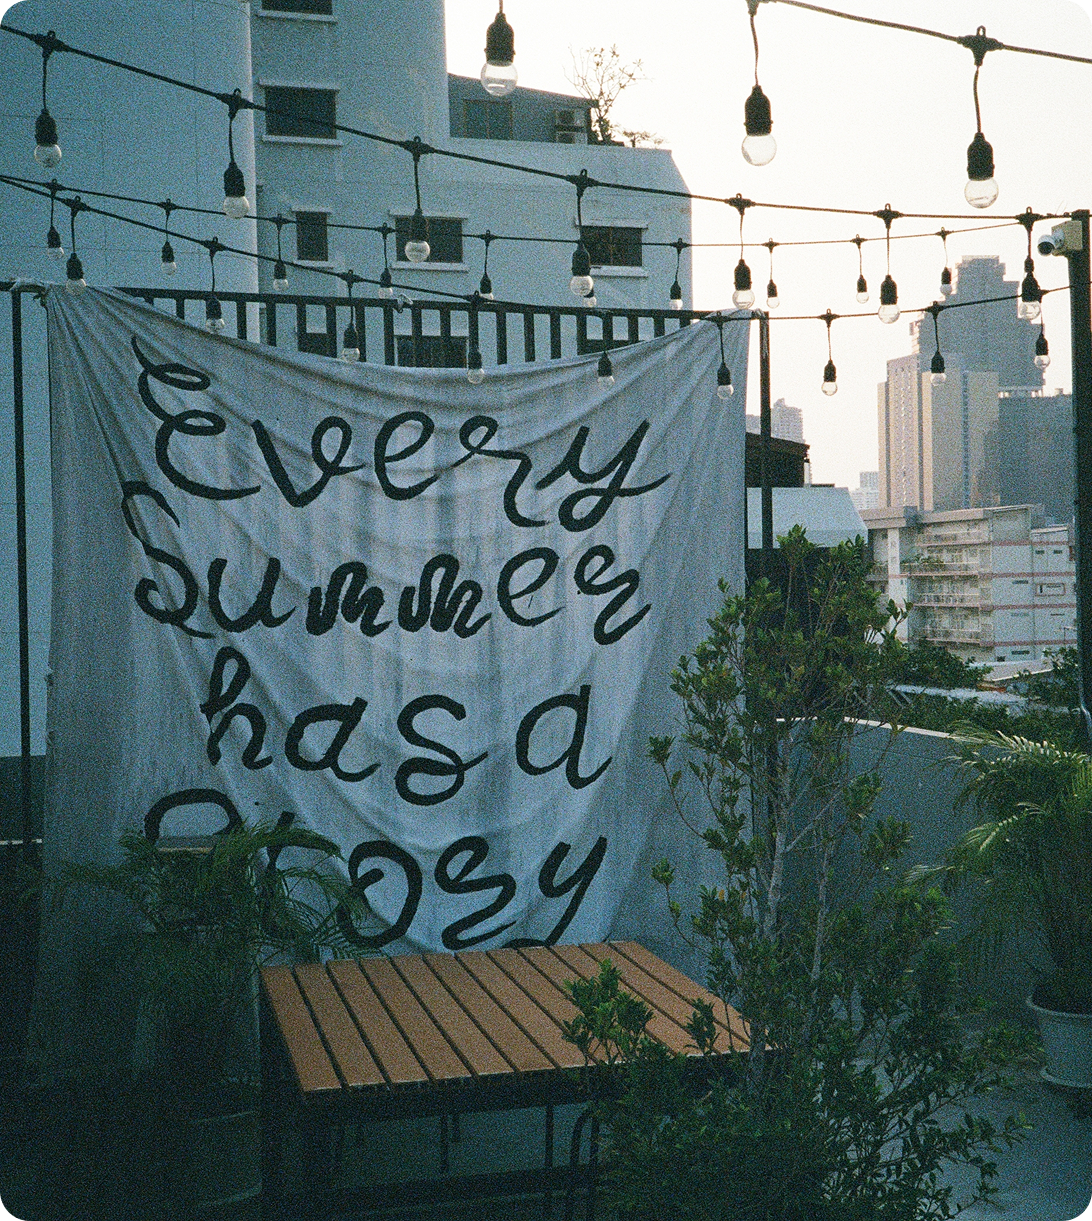 Every
Summer
has a
Story